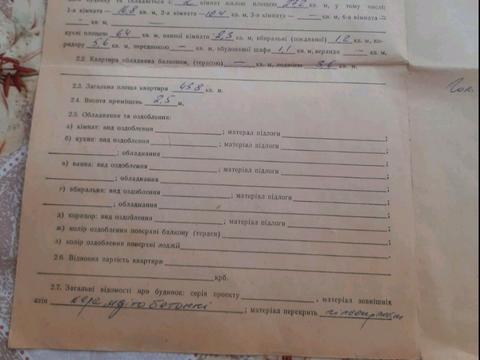 1-а кімната — 16.8 кв. м, 2-а кімната — 10.4 кв. м, 3-я кімната — — кв. м, 4-а кімната —
— кв. м, — кв. м,
кухні площею 6.4 кв. м, ванної кімнати 2.3 кв. м, вбиральні (поєднаної) 1.2 кв. м, ко-
ридору 5.6 кв. м, передпокою — кв. м, вбудованої шафи 1.1 кв. м, веранди —
кв. м.
2.2. Квартира обладнана балконом, (терасою) — кв. м, лоджією 3.6 кв. м.
2.3. Загальна площа квартири 45.8 кв. м.
2.4. Висота приміщень 2,5 м.
2.5. Обладнання та оздоблення:
а) кімнат: вид оздоблення ; матеріал підлоги
б) кухні: вид оздоблення ; матеріал підлоги
; обладнання
в) ванна: вид оздоблення ; матеріал підлоги
; обладнання
г) вбиральня: вид оздоблення ; матеріал підлоги
; обладнання
д) коридор: вид оздоблення ; матеріал підлоги
ж) колір оздоблення поверхні балкону (тераси)
з) колір оздоблення поверхні лоджії
2.6. Відновна вартість квартири
крб.
2.7. Загальні відомості про будинок: серія проекту , матеріал зовнішніх
стін керамзітобетонні ; матеріал перекрить